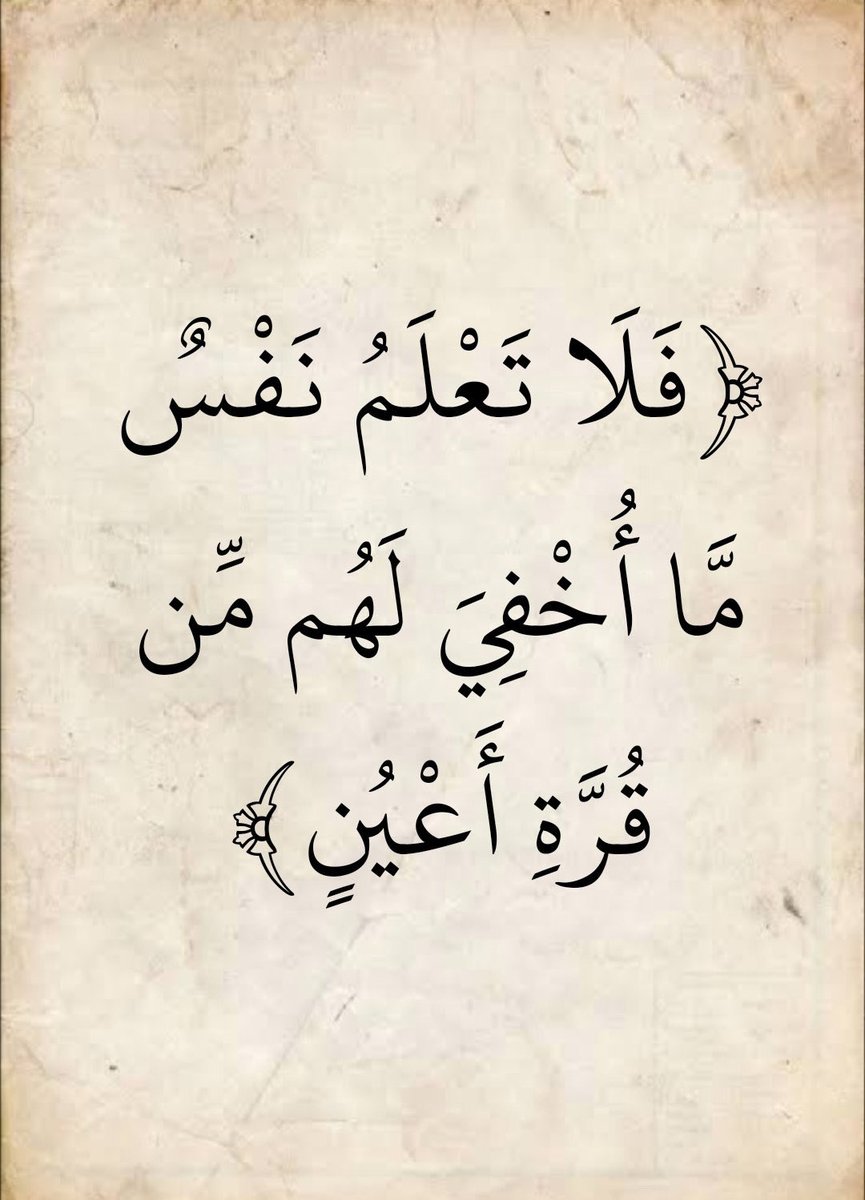 ﴿ فَلَا تَعْلَمُ نَفْسٌ
مَّا أُخْفِيَ لَهُم مِّن
قُرَّةِ أَعْيُنٍ ﴾